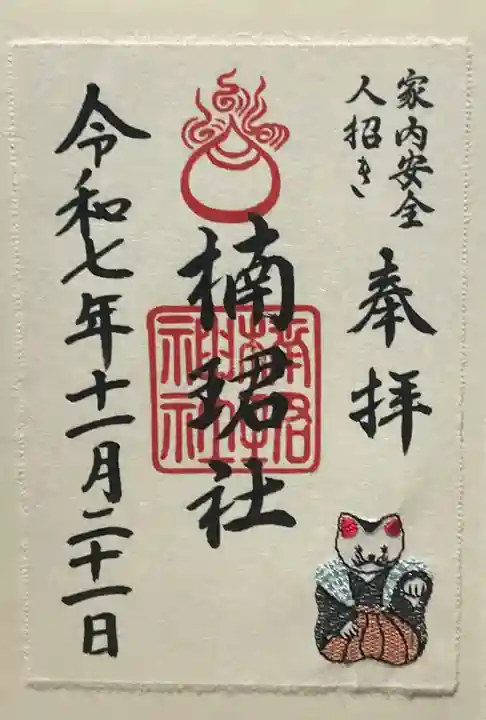 家内安全
人招き
奉拝
楠珺社
令和七年十一月二十一日